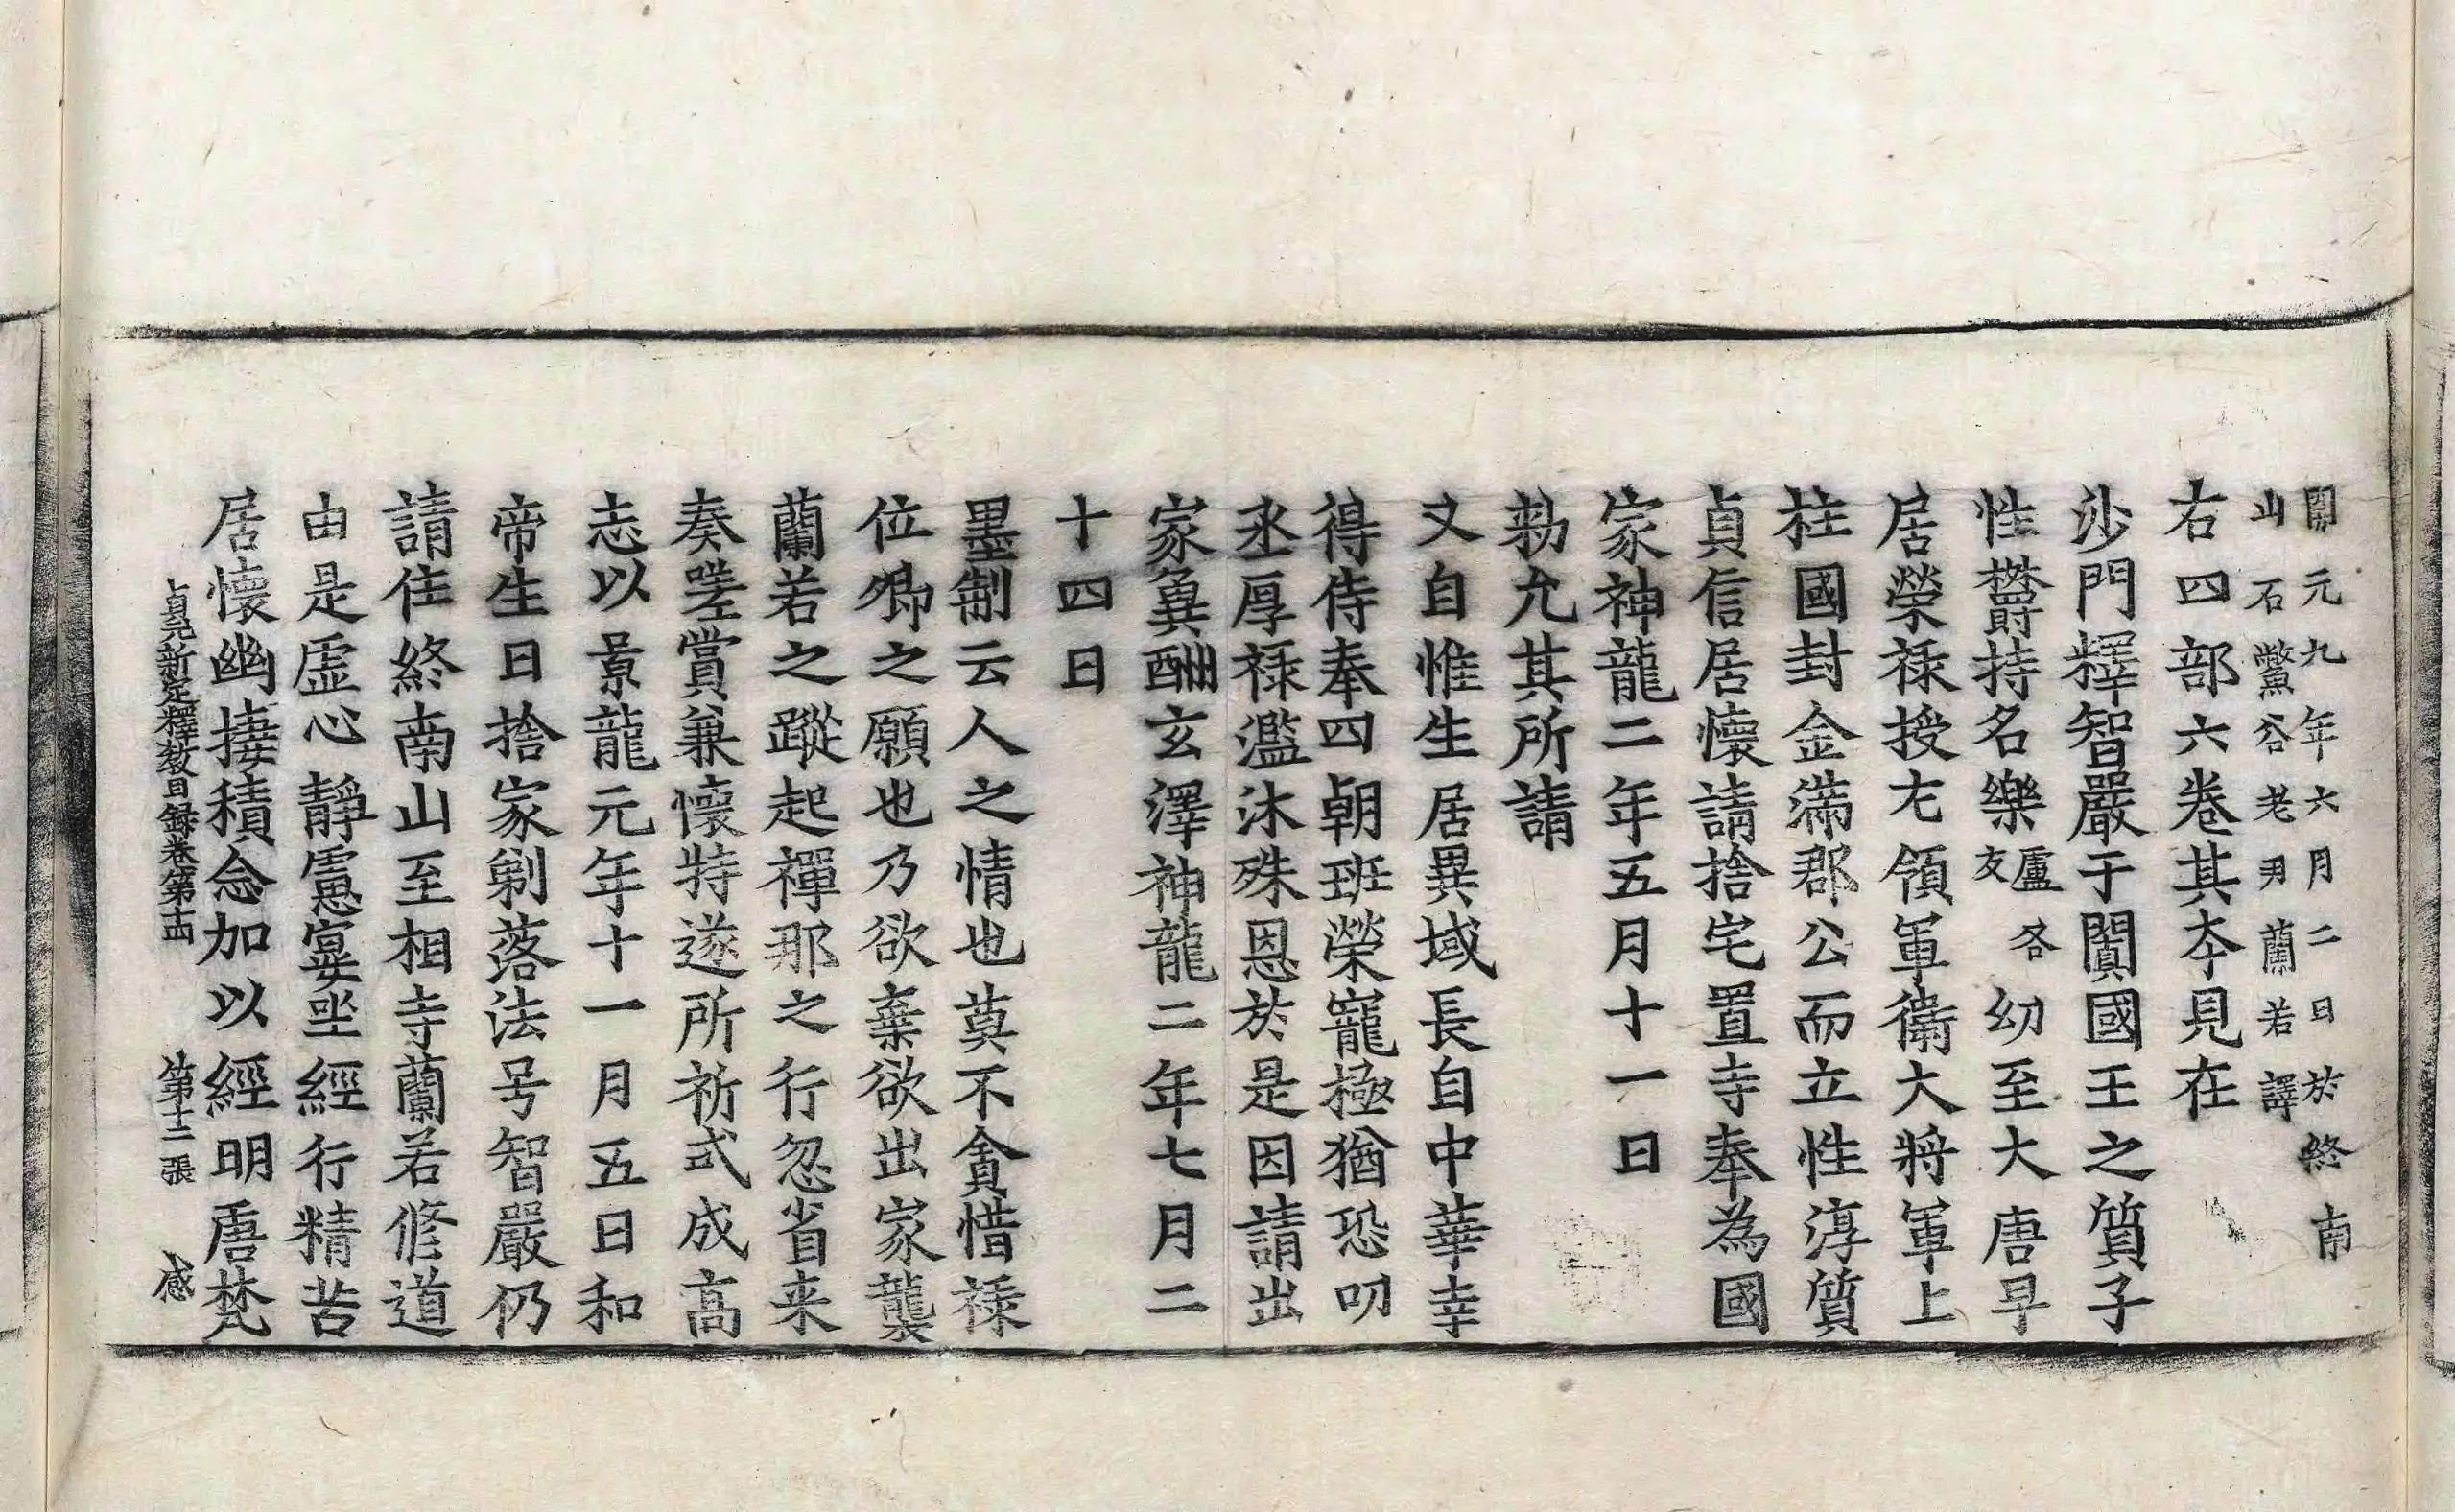 開元九年六月二日於終南
山石鱉谷老尹蘭若譯
右四部六卷其夲見在
沙門釋智嚴于闐國王之質子
性欝持名樂盧各友幼至大唐早
居榮禄授左領軍衛大將軍上
柱國封金滿郡公而立性淳質
貞信居懷請捨宅置寺奉為國
家神龍二年五月十一日
勑允其所請
又自惟生居異域長自中華幸
得侍奉四朝班榮寵極猶恐叨
丞厚禄濫沐殊恩於是因請出
家兾酬玄澤神龍二年七月二
十四日
墨制云人之情也莫不貪惜禄
位卿之願也乃欲棄欲出家襲
蘭若之蹤起禪那之行忽省来
奏嗟賞兼懷特遂所祈式成高
志以景龍元年十一月五日和
帝生日捨家剃落法号智嚴仍
請住終南山至相寺蘭若修道
由是虛心靜慮宴坐經行精苦
居懷幽捿積念加以經明唐梵
貞元新定釋教目録卷第十四 第十二張 感